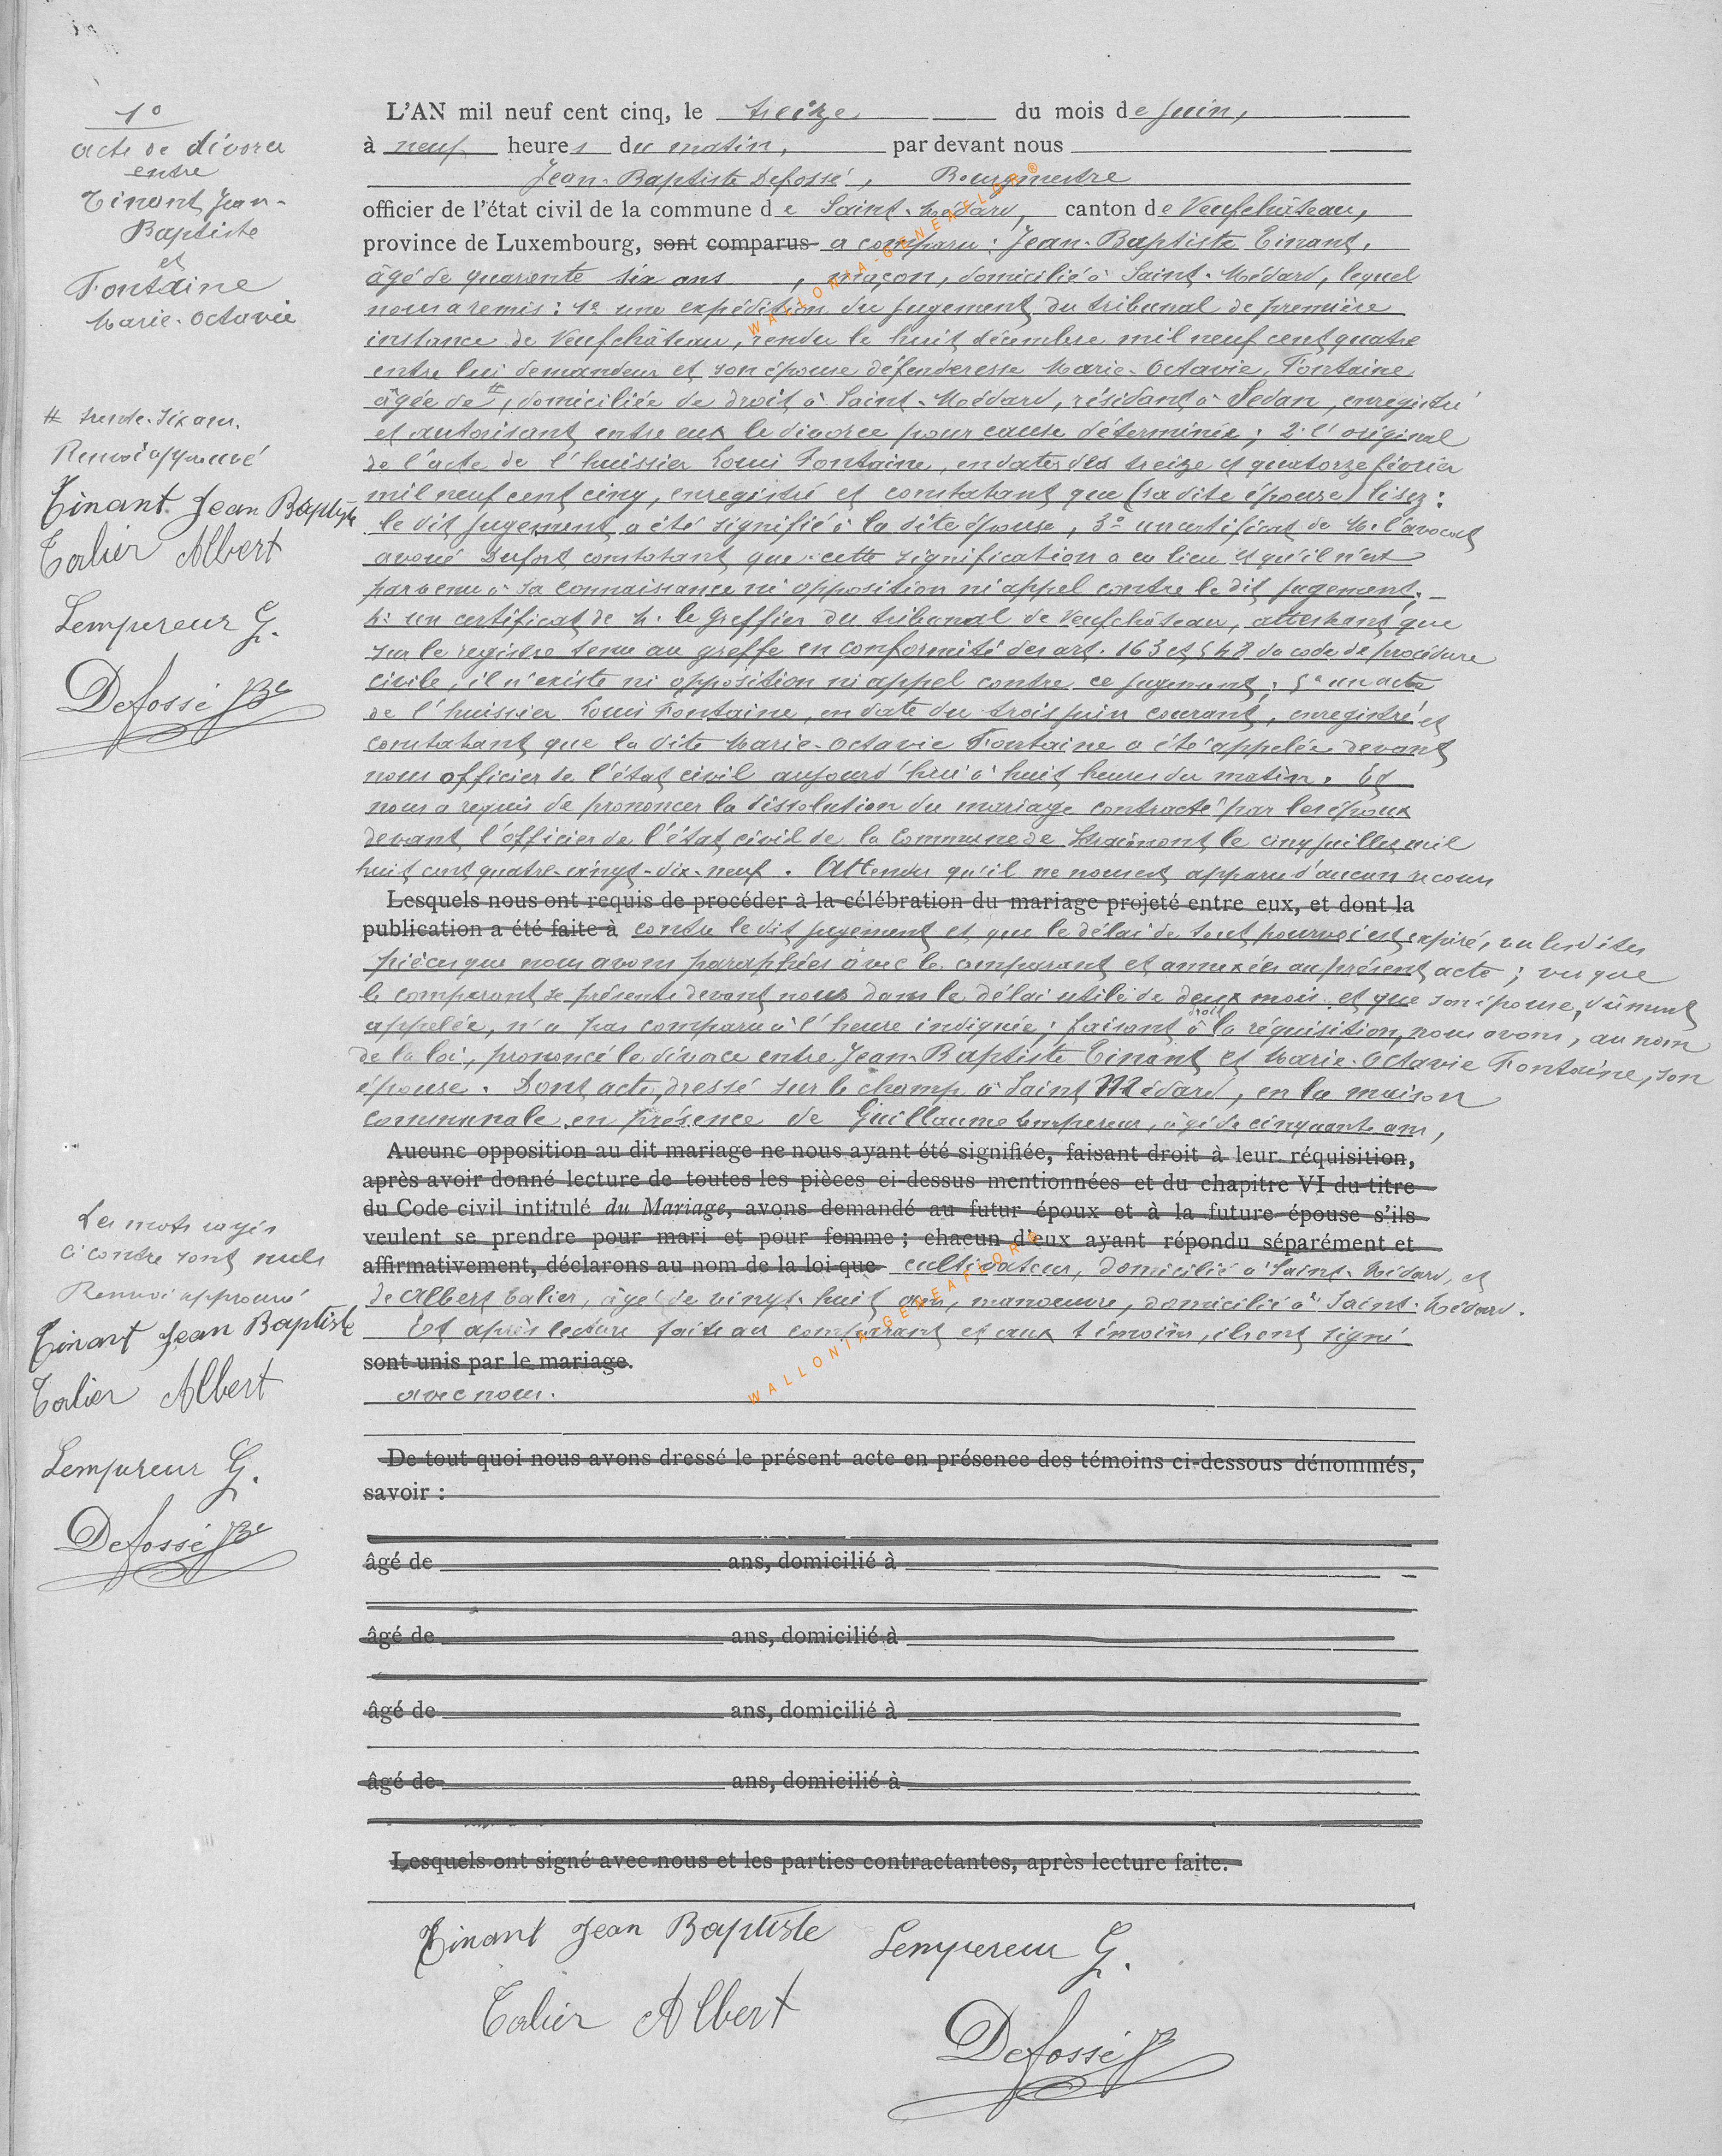 1º
acte de divorce
entre
Tinant Jean-
Baptiste
et
Fontaine
Marie-Octavie
L'AN mil neuf cent cinq, le treize du mois de juin,
à neuf heures du matin, par devant nous
Jean-Baptiste Defossé, Bourgmestre
officier de l'état civil de la commune de Saint-Médard, canton de Neufchâteau,
province de Luxembourg, sont comparus a comparu : Jean-Baptiste Tinant,
âgé de quarante six ans, maçon, domicilié à Saint-Médard, lequel
nous a remis : 1º une expédition du jugement du tribunal de première
instance de Neufchâteau, rendu le huit décembre mil neuf cent quatre
entre lui demandeur et son épouse défenderesse Marie-Octavie Fontaine
âgée de #, domiciliée de droit à Saint-Médard, résidant à Sedan, enregistré
et autorisant entre eux le divorce pour cause déterminée ; 2º l'original
de l'acte de l'huissier Louis Fontaine, en date des treize et quatorze février
mil neuf cent cinq, enregistré et constatant que (sa dite épouse) lisez :
le dit jugement a été signifié à la dite épouse, 3º un certificat de M. l'avocat
avoué Dufort constatant que cette signification a eu lieu et qu'il n'est
parvenu à sa connaissance ni opposition ni appel contre le dit jugement ;
4º un certificat de M. le Greffier du tribunal de Neufchâteau, attestant que
sur le registre tenu au greffe en conformité des art. 163 et 548 du code de procédure
civile, il n'existe ni opposition ni appel contre ce jugement ; 5º un acte
de l'huissier Louis Fontaine, en date du trois juin courant, enregistré et
constatant que la dite Marie-Octavie Fontaine a été appelée devant
nous officier de l'état civil aujourd'hui à huit heures du matin. Et
nous a requis de prononcer la dissolution du mariage contracté par les époux
devant l'officier de l'état civil de la Commune de Straimont le cinq juillet mil
huit cent quatre-vingt-dix-neuf. Attendu qu'il ne nous est apparu d'aucun recours
Lesquels nous ont requis de procéder à la célébration du mariage projeté entre eux, et dont la
publication a été faite à contre le dit jugement et que le délai de tout pourvoi est expiré, vu les dites
pièces que nous avons paraphées avec le comparant et annexées au présent acte ; vu que
le comparant se présente devant nous dans le délai utile de deux mois et que son épouse, dûment
appelée, n'a pas comparu à l'heure indiquée ; faisant droit à la réquisition, nous avons, au nom
de la loi, prononcé le divorce entre Jean-Baptiste Tinant et Marie-Octavie Fontaine, son
épouse. Dont acte, dressé sur le champ à Saint Médard, en la maison
communale en présence de Guillaume Lempereur, âgé de cinquante ans,
Aucune opposition au dit mariage ne nous ayant été signifiée, faisant droit à leur réquisition,
après avoir donné lecture de toutes les pièces ci-dessus mentionnées et du chapitre VI du titre
du Code civil intitulé du Mariage, avons demandé au futur époux et à la future épouse s'ils
veulent se prendre pour mari et pour femme ; chacun d'eux ayant répondu séparément et
affirmativement, déclarons au nom de la loi que cultivateur, domicilié à Saint-Médard, et
de Albert Talier, âgé de vingt-huit ans, manoeuvre, domicilié à Saint-Médard.
Et après lecture faite au comparant et aux témoins, ils ont signé
sont unis par le mariage.
avec nous.
De tout quoi nous avons dressé le présent acte en présence des témoins ci-dessous dénommés,
savoir :
âgé de ans, domicilié à
âgé de ans, domicilié à
âgé de ans, domicilié à
âgé de ans, domicilié à
Lesquels ont signé avec nous et les parties contractantes, après lecture faite.
Tinant Jean Baptiste Lempereur G.
Talier Albert
Defossé JB
# trente-six ans.
Renvoi approuvé
Tinant Jean Baptiste
Talier Albert
Lempereur G.
Defossé JBte
Les mots rayés
ci contre sont nuls
Renvoi approuvé
Tinant Jean Baptiste
Talier Albert
Lempereur G.
Defossé JBte
WALLONIA-GENEAFLOR®
WALLONIA-GENEAFLOR®